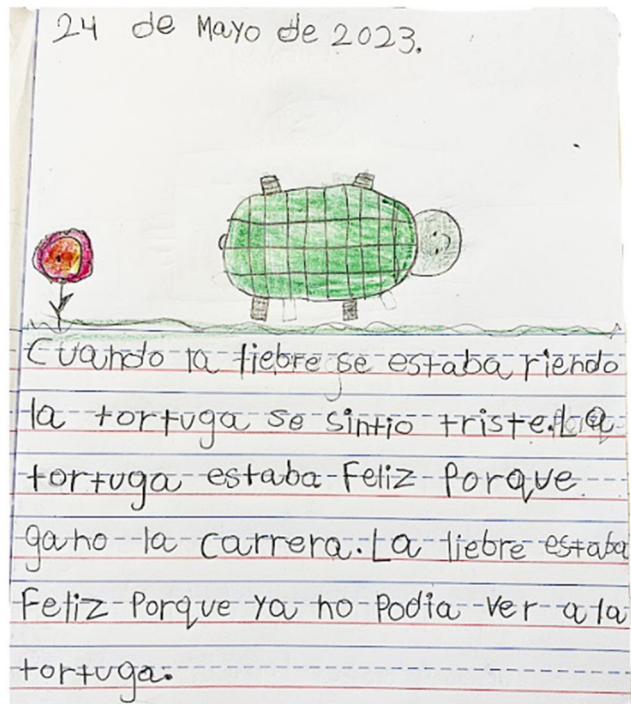 24 de Mayo de 2023.
Cuando la liebre se estaba riendo
la tortuga se sintio triste. La
tortuga estaba Feliz Porque
gano la carrera. La liebre estaba
Feliz Porque ya no Podia ver a la
tortuga.